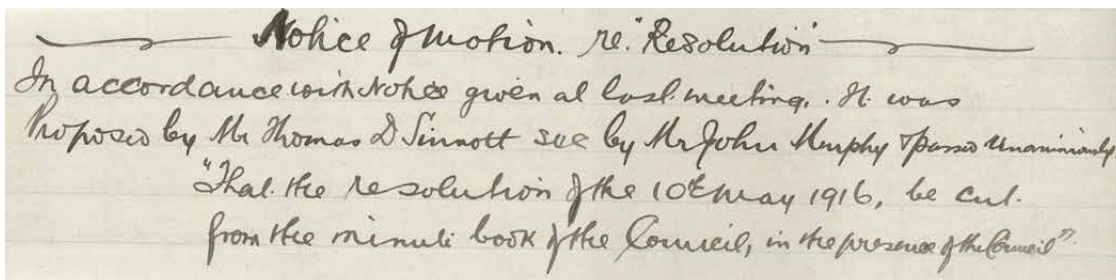 Notice of Motion. re. "Resolution"
In accordance with Notice given at last meeting. It was
Proposed by Mr Thomas D Sinnott sec by Mr John Murphy & passed Unanimously
"That the resolution of the 10th May 1916, be cut
from the minute book of the Council, in the presence of the Council".